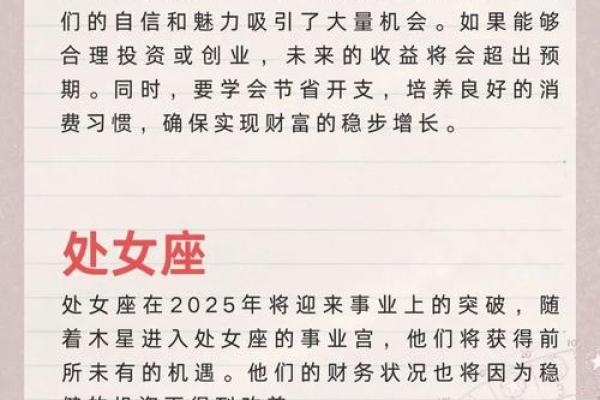 们的自信和魅力吸引了大量机会。如果能够
合理投资或创业，未来的收益将会超出预
期。同时，要学会节省开支，培养良好的消
费习惯，确保实现财富的稳步增长。
处女座
处女座在2025年将迎来事业上的突破，随
着木星进入处女座的事业宫，他们将获得前
所未有的机遇。他们的财务状况也将因为稳